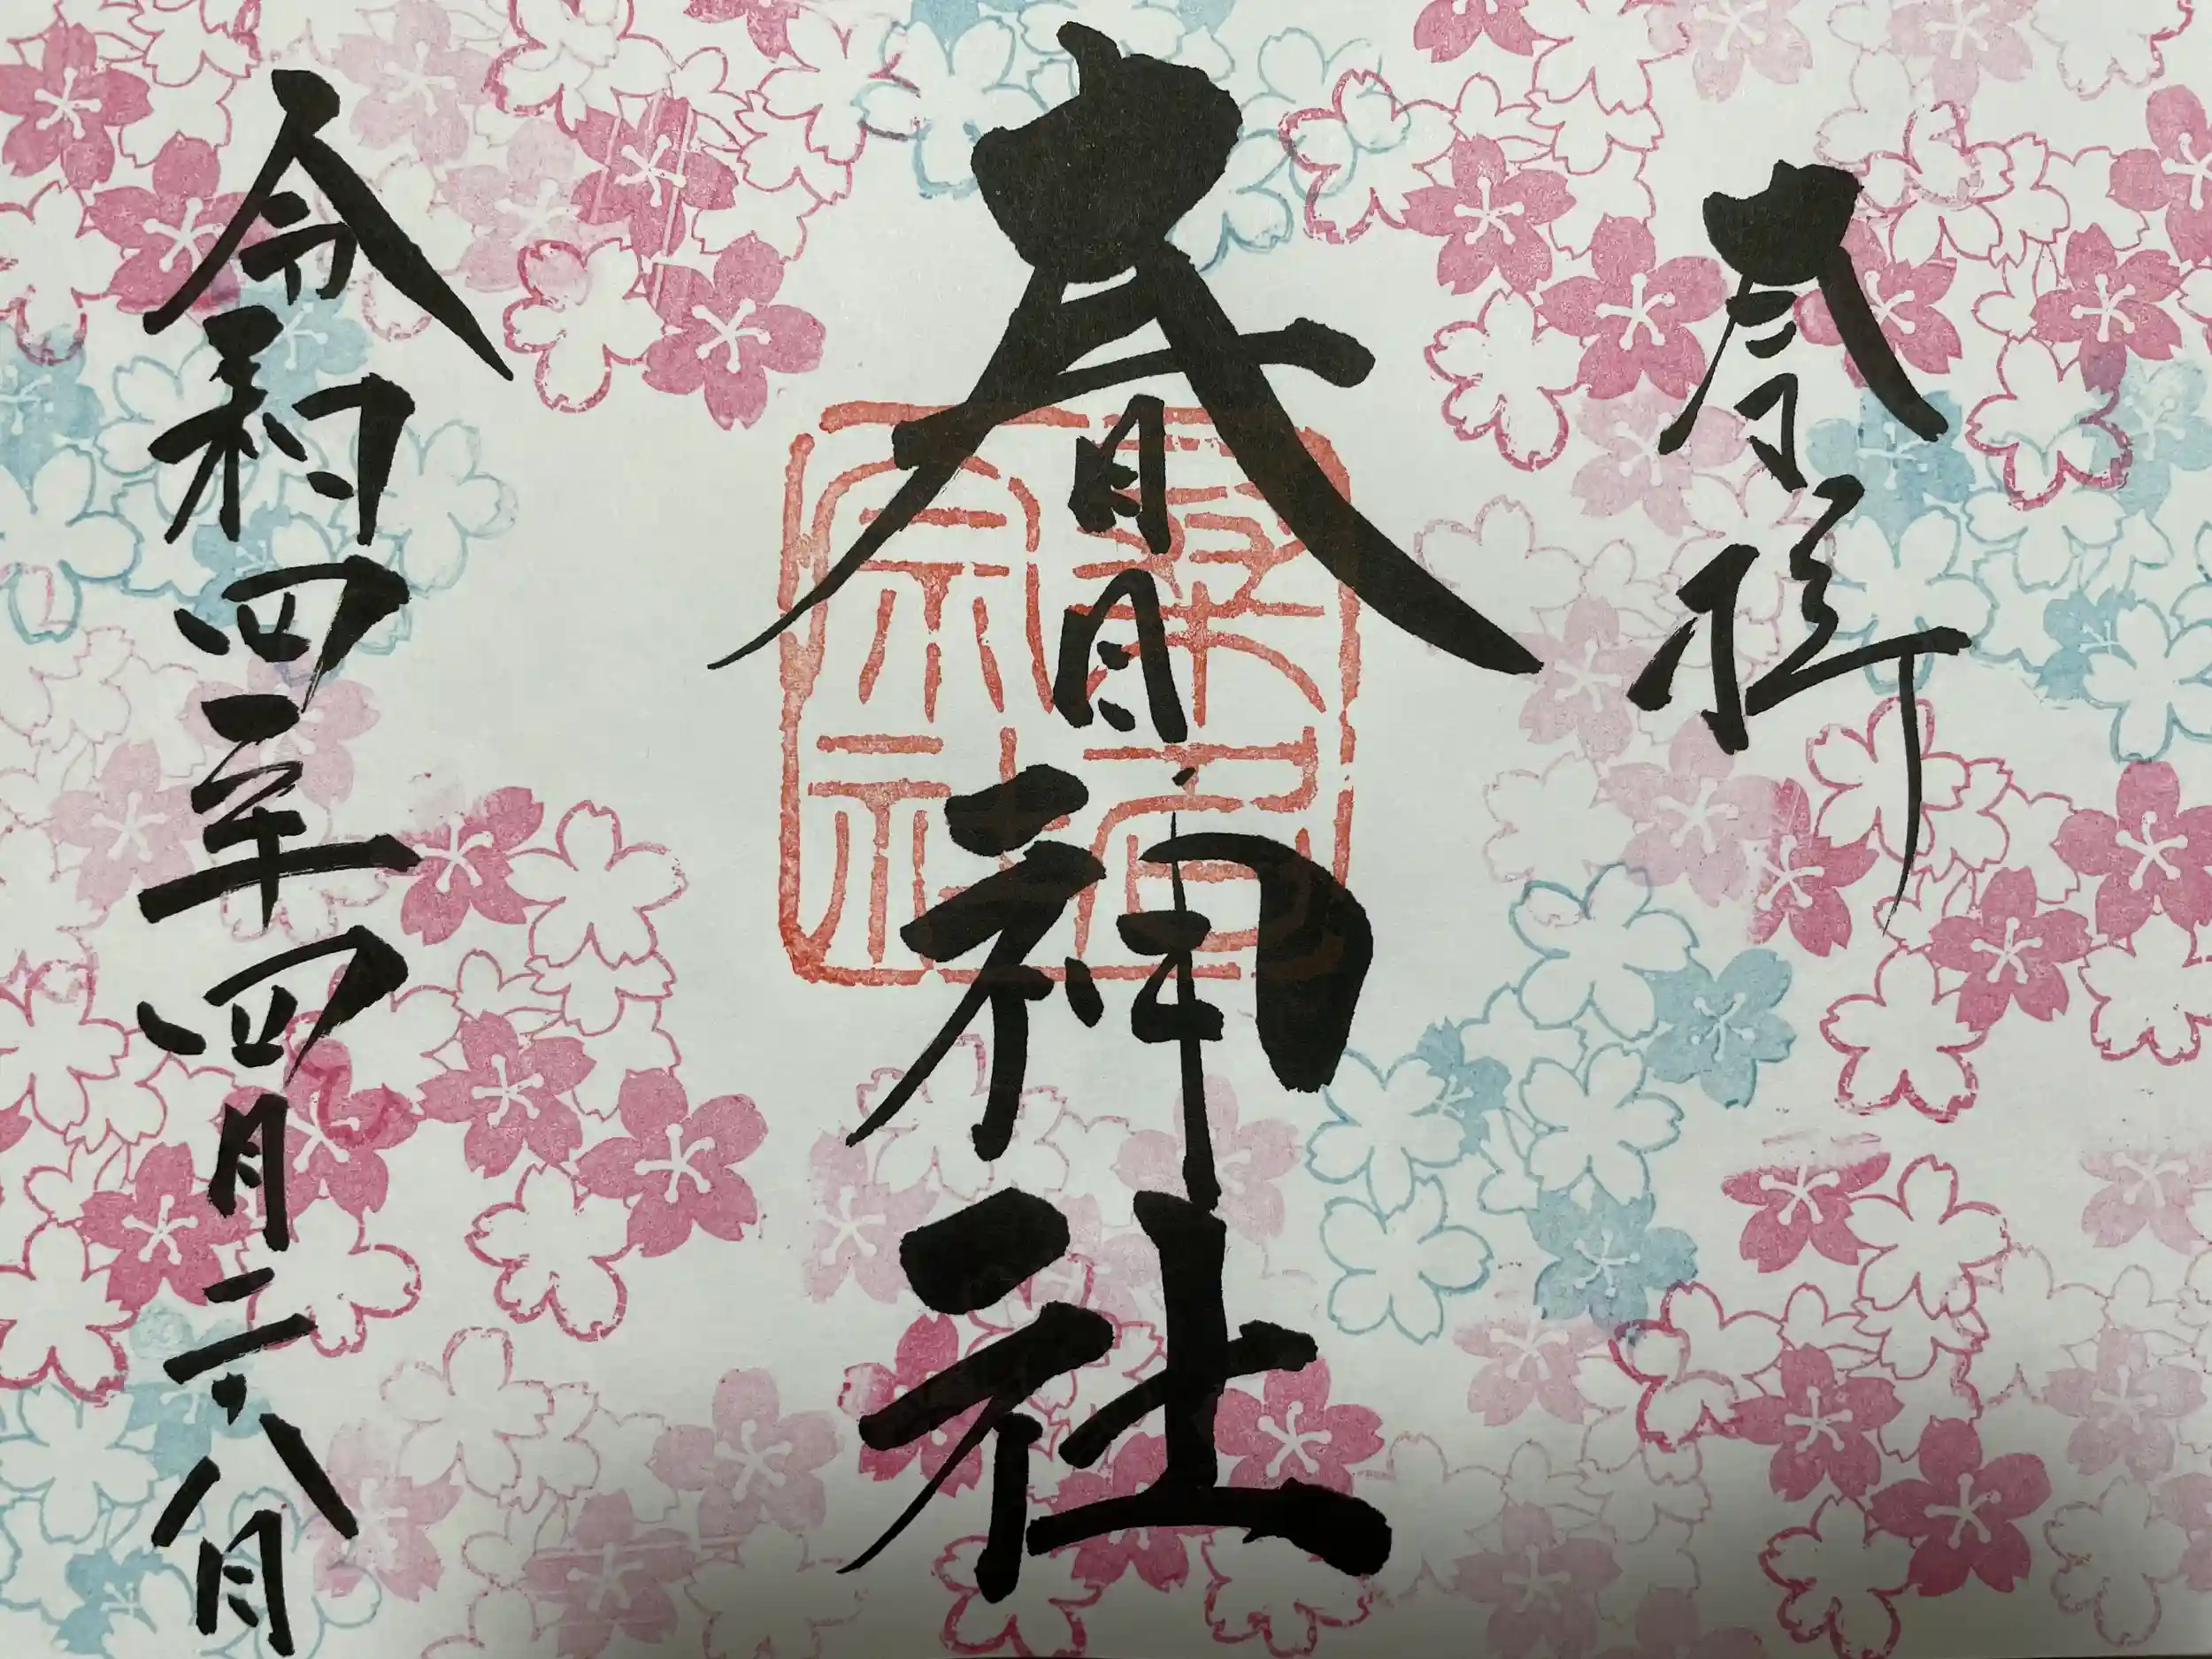 奉拝
春日神社
令和四年四月二十八日